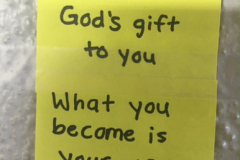 God's gift
to you
What you
become is